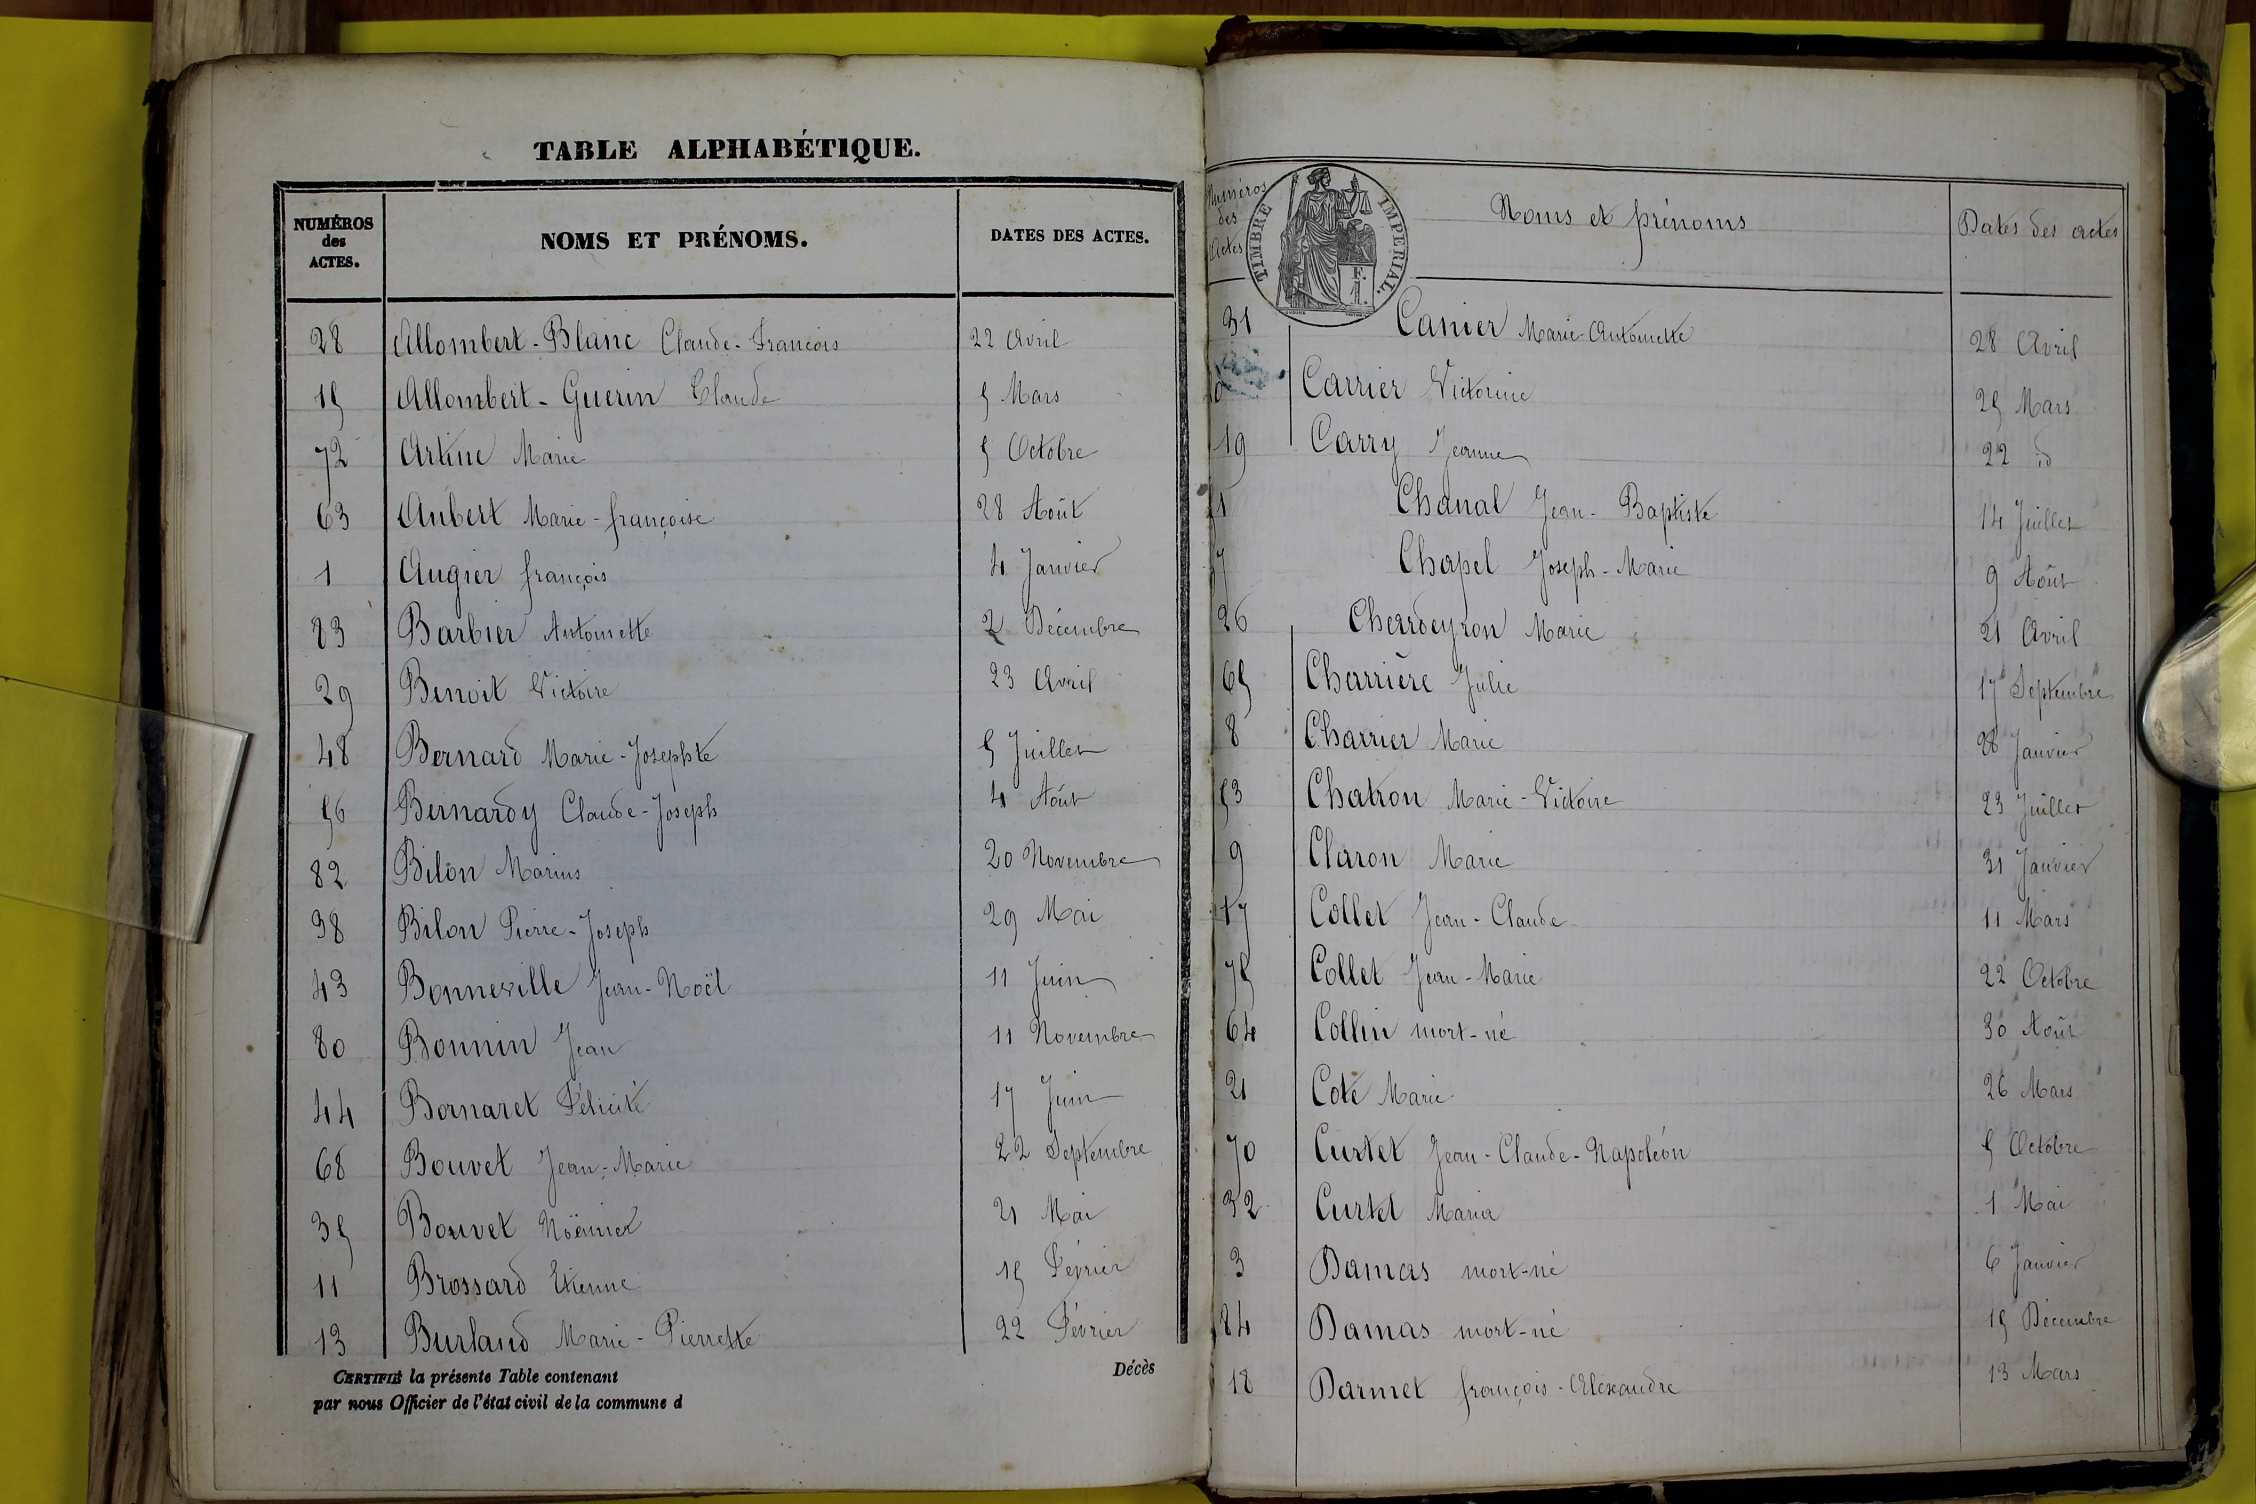 TABLE ALPHABÉTIQUE.
NUMÉROS des ACTES. NOMS ET PRÉNOMS. DATES DES ACTES.
28 Allombert-Blanc Claude-François 22 Avril
15 Allombert-Guerin Claude 5 Mars
72 Artine Marie 5 Octobre
63 Aubert Marie-françoise 28 Août
1 Augier françois 4 Janvier
83 Barbier Antoinette 2 Décembre
29 Benoit Victoire 23 Avril
48 Bernard Marie-Josephte 5 Juillet
56 Bernardy Claude-Joseph 4 Août
82 Bilon Marius 20 Novembre
38 Bilon Pierre-Joseph 29 Mai
43 Bonneville Jean-Noël 11 Juin
80 Bonnin Jean 11 Novembre
44 Bornaret Félicité 17 Juin
68 Bouvet Jean-Marie 22 Septembre
35 Bouvet 21 Mai
11 Brossard Etienne 15 Février
13 Burland Marie-Pierrette 22 Février
CERTIFIÉ la présente Table contenant Décès
par nous Officier de l'état civil de la commune d
Numéros des Actes Noms et prénoms Dates des actes
TIMBRE IMPERIAL.
F.
1.
31 Canier Marie-Antoinette 28 Avril
Carrier Victorine 25 Mars
19 Carry Jeanne 22 id
Chanal Jean-Baptiste 14 Juillet
Chapel Joseph-Marie 9 Août
26 Chardeyron Marie 21 Avril
65 Charrière Julie 17 Septembre
8 Charrier Marie 28 Janvier
53 Chatron Marie-Victoire 23 Juillet
9 Claron Marie 31 Janvier
17 Collet Jean-Claude 11 Mars
75 Collet Jean-Marie 22 Octobre
64 Collin mort-né 30 Août
21 Coté Marie 26 Mars
70 Curtet Jean-Claude-Napoléon 5 Octobre
32 Curtet Maria 1 Mai
3 Damas mort-né 6 Janvier
84 Damas mort-né 15 Décembre
18 Darmet françois-Alexandre 13 Mars